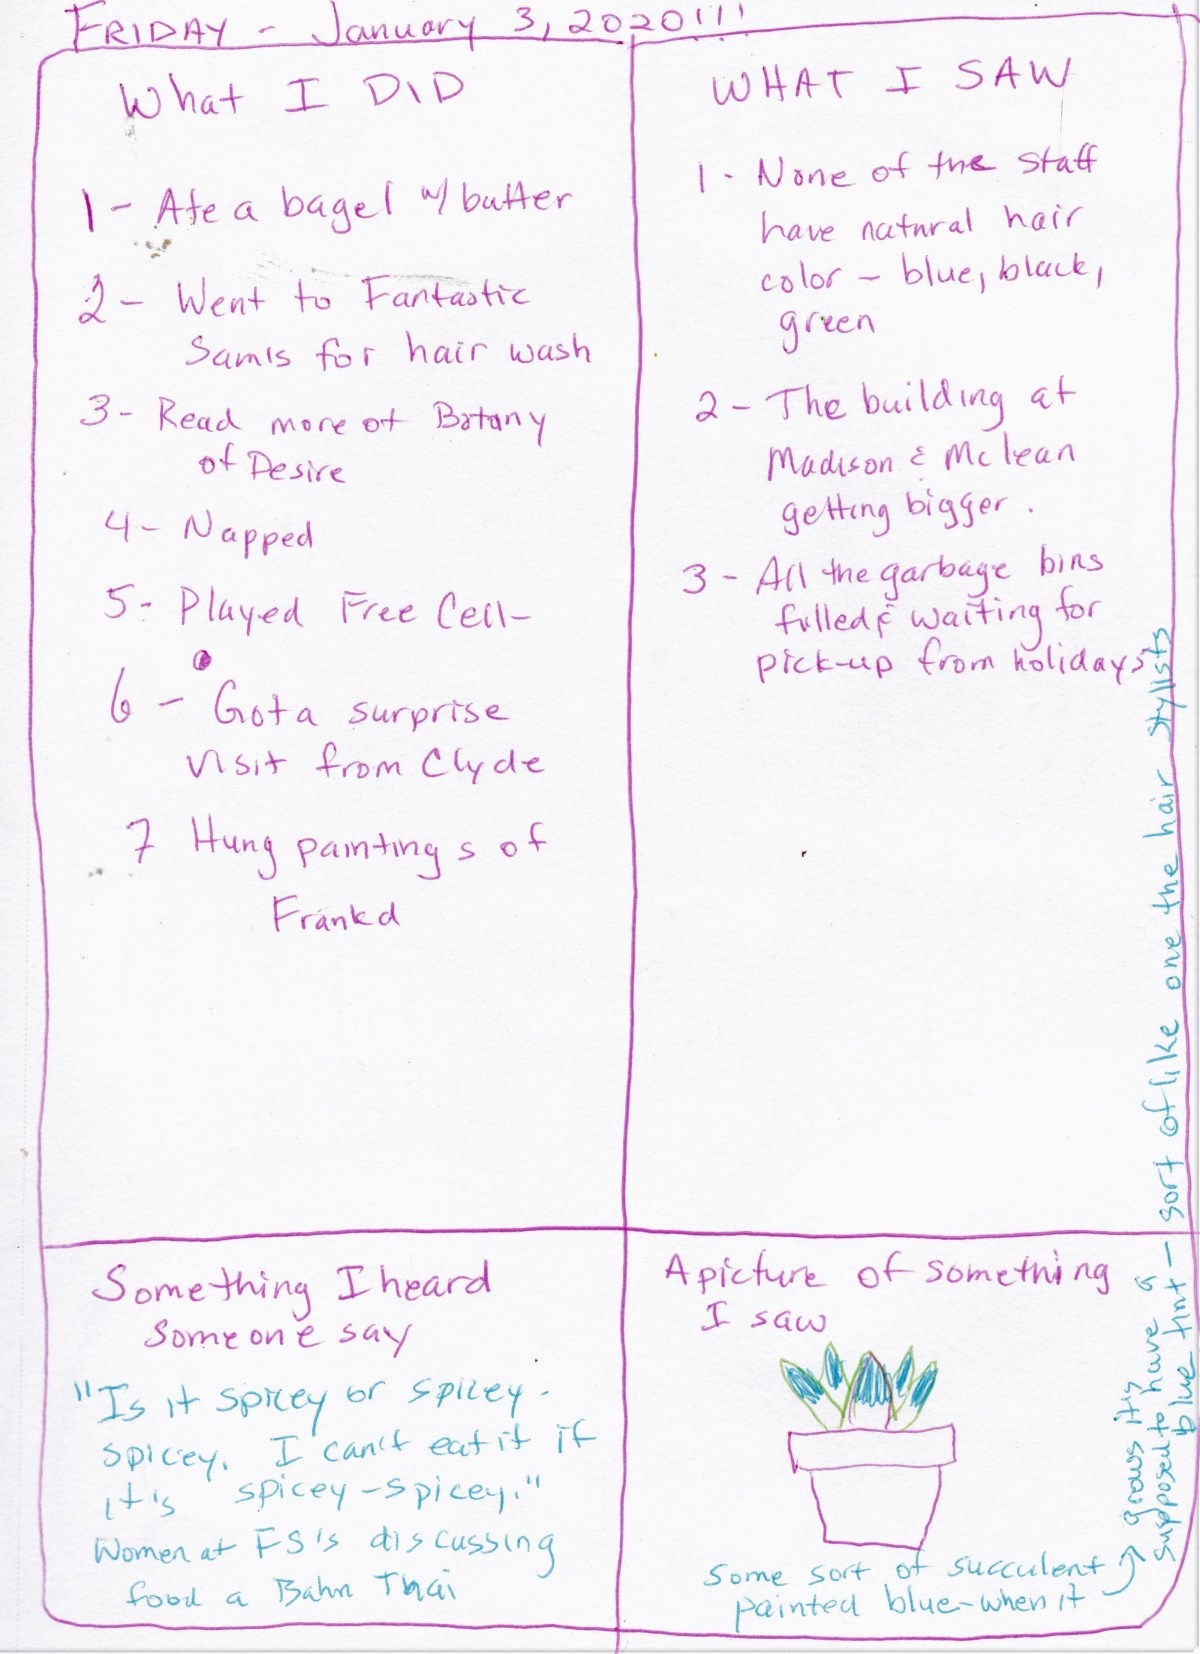 FRIDAY - January 3, 2020!!!
What I DID
1 - Ate a bagel w/ butter
2 - Went to Fantastic
Sam's for hair wash
3 - Read more of Botany
of Desire
4 - Napped
5 - Played Free Cell -
6 - Got a surprise
visit from Clyde
7 Hung paintings of
Frankd
WHAT I SAW
1 - None of the staff
have natural hair
color - blue, black,
green
2 - The building at
Madison & Mclean
getting bigger.
3 - All the garbage bins
filled & waiting for
pick-up from holidays
Something I heard
someone say
"Is it spicey or spicey -
spicey. I can't eat it if
it's spicey-spicey."
Women at FS's discussing
food a Bahn Thai
A picture of something
I saw
Some sort of succulent
painted blue - when it
grows it's
supposed to have a
blue tint - sort of like one the hair stylists